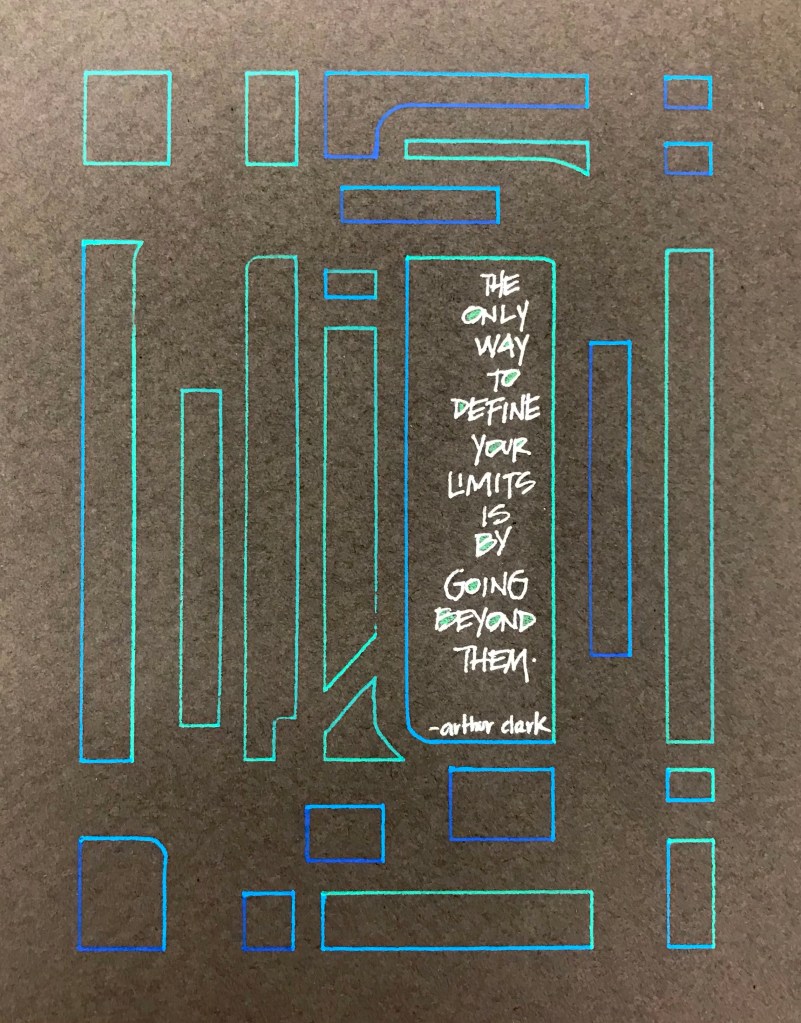 THE
ONLY
WAY
TO
DEFINE
YOUR
LIMITS
IS
BY
GOING
BEYOND
THEM.
-arthur clark